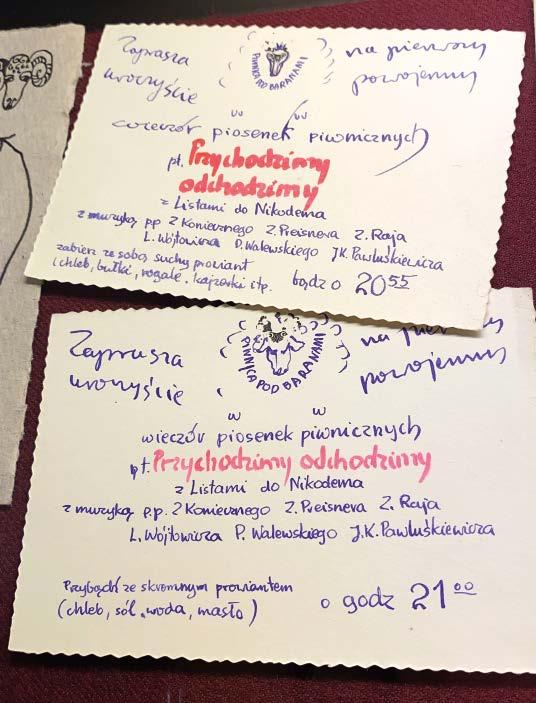 Zaprasza
uroczyście
PIWNICA POD BARANAMI
na pierwszy
powojenny
wieczór piosenek piwnicznych
pt. Przychodzimy
odchodzimy
z Listami do Nikodema
z muzyką pp. Z Koniecznego Z. Preisnera Z. Raja
L. Wójtowicza P. Walewskiego J.K. Pawluśkiewicza
zabierz ze sobą suchy prowiant
(chleb, bułki, rogale, kajzerki itp.
bądź o 20 55
Zaprasza
uroczyście
PIWNICA POD BARANAMI
na
powojenny
wieczór piosenek piwnicznych
pt. Przychodzimy odchodzimy
z Listami do Nikodema
z muzyką p.p. Z Koniecznego Z. Preisnera Z. Raja
L. Wójtowicza P. Walewskiego J.K. Pawluśkiewicza
Przybądź ze skromnym prowiantem
(chleb, sól, woda, masło)
o godz 21 00